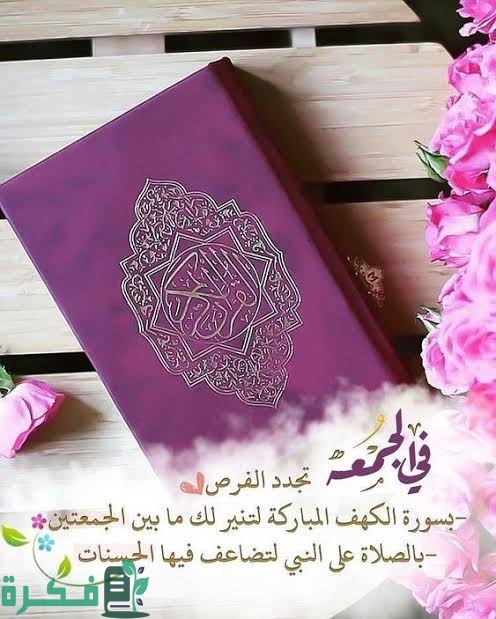 القرآن الكريم
في الجمعه
تجدد الفرص
-بسورة الكهف المباركة لتنير لك ما بين الجمعتين
-بالصلاة على النبي لتضاعف فيها الحسنات
فكرة